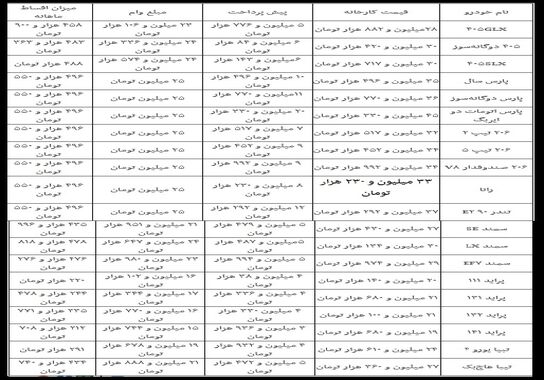 نام خودرو قیمت کارخانه پیش پرداخت مبلغ وام میزان اقساط ماهانه
۴۰۵GLX ۲۸میلیون و ۸۸۲ هزار تومان ۵ میلیون و ۷۷۶ هزار تومان ۲۳ میلیون و ۱۰۶ هزار تومان ۴۵۸ هزار و ۹۰۰ تومان
۴۰۵ دوگانه‌سوز ۳۰ میلیون و ۴۲۰ هزار تومان ۶ میلیون و ۸۴ هزار تومان ۲۴ میلیون و ۳۳۶ هزار تومان ۴۸۳ هزار و ۳۶۳ تومان
۴۰۵SLX ۳۰ میلیون و ۷۱۷ هزار تومان ۶میلیون و ۱۴۳ هزار تومان ۲۴ میلیون و ۵۷۴ هزار تومان ۴۸۸ هزار تومان
پارس سال ۳۵ میلیون و ۴۹۶ هزار تومان ۱۰ میلیون و ۴۹۶ هزار تومان ۲۵ میلیون تومان ۴۹۶ هزار و ۵۵۰ تومان
پارس دوگانه‌سوز ۳۶ میلیون و ۷۷۰ هزار تومان ۱۱میلیون و ۷۷۰ هزار تومان ۲۵ میلیون تومان ۴۹۶ هزار و ۵۵۰ تومان
پارس اتومات دو ایربگ ۴۵ میلیون و ۳۳۰ هزار تومان ۲۰ میلیون و ۳۳۰ هزار تومان ۲۵ میلیون تومان ۴۹۶ هزار و ۵۵۰ تومان
۲۰۶ تیپ ۲ ۳۲ میلیون و ۵۱۷ هزار تومان ۷ میلیون و ۵۱۷ هزار تومان ۲۵ میلیون تومان ۴۹۶ هزار و ۵۵۰ تومان
۲۰۶ تیپ ۵ ۳۴ میلیون و ۴۵۲ هزار تومان ۹ میلیون و ۴۵۲ هزار تومان ۲۵ میلیون تومان ۴۹۶ هزار و ۵۵۰ تومان
۲۰۶ صندوقدار V۸ ۳۴ میلیون و ۹۹۲ هزار تومان ۹ میلیون و ۹۹۲ هزار تومان ۲۵ میلیون تومان ۴۹۶ هزار و ۵۵۰ تومان
رانا ۳۳ میلیون و ۲۳۰ هزار تومان ۸ میلیون و ۲۳۰ هزار تومان ۲۵ میلیون تومان ۴۹۶ هزار و ۵۵۰ تومان
تندر ۹۰ E۲ ۳۷ میلیون و ۲۹۲ هزار تومان ۱۲ میلیون و ۲۹۲ هزار تومان ۲۵ میلیون تومان ۴۹۶ هزار و ۵۵۰ تومان
سمند SE ۲۷ میلیون و ۴۳۰ هزار تومان ۵ میلیون و ۴۷۹ هزار تومان ۲۱ میلیون و ۹۵۱ هزار تومان ۴۳۵ هزار و ۹۹۶ تومان
سمند LX ۳۰ میلیون و ۱۳۴ هزار تومان ۵میلیون و ۴۸۷ هزار تومان ۲۴ میلیون و ۶۴۷ هزار تومان ۴۷۸ هزار و ۸۱۸ تومان
سمند EF۷ ۲۹ میلیون و ۹۷۴ هزار تومان ۵ میلیون و ۹۹۴ هزار تومان ۲۳ میلیون و ۹۸۰ هزار تومان ۴۷۶ هزار و ۲۷۶ تومان
پراید ۱۱۱ ۲۰ میلیون و ۱۴۰ هزار تومان ۴ میلیون و ۳۸ هزار تومان ۱۶ میلیون و ۱۰۲ هزار تومان ۳۲۰ هزار تومان
پراید ۱۳۱ ۲۱ میلیون و ۶۸۰ هزار تومان ۴ میلیون و ۳۳۶ هزار تومان ۱۷ میلیون و ۳۴۴ هزار تومان ۳۴۴ هزار و ۴۷۸ تومان
پراید ۱۳۲ ۲۱ میلیون و ۱۰۰ هزار تومان ۴ میلیون ۳۳۰ هزار تومان ۱۶ میلیون و ۷۷۰ هزار تومان ۳۳۵ هزار و ۷۷۱ تومان
پراید ۱۴۱ ۱۹ میلیون و ۶۸۰ هزار تومان ۳ میلیون و ۹۳۶ هزار تومان ۱۵ میلیون و ۷۴۴ هزار تومان ۳۱۲ هزار و ۷۰۸ تومان
تیبا یورو ۴ ۲۴ میلیون و ۶۱۰ هزار تومان ۴ میلیون و ۹۳۲ هزار تومان ۱۹ میلیون و ۶۷۸ هزار تومان ۳۹۱ هزار تومان
تیبا هاچ‌بک ۲۷ میلیون و ۳۶۰ هزار تومان ۵ میلیون و ۴۷۲ هزار تومان ۲۱ میلیون و ۸۸۸ هزار تومان ۴۳۴ هزار و ۷۴۰ تومان